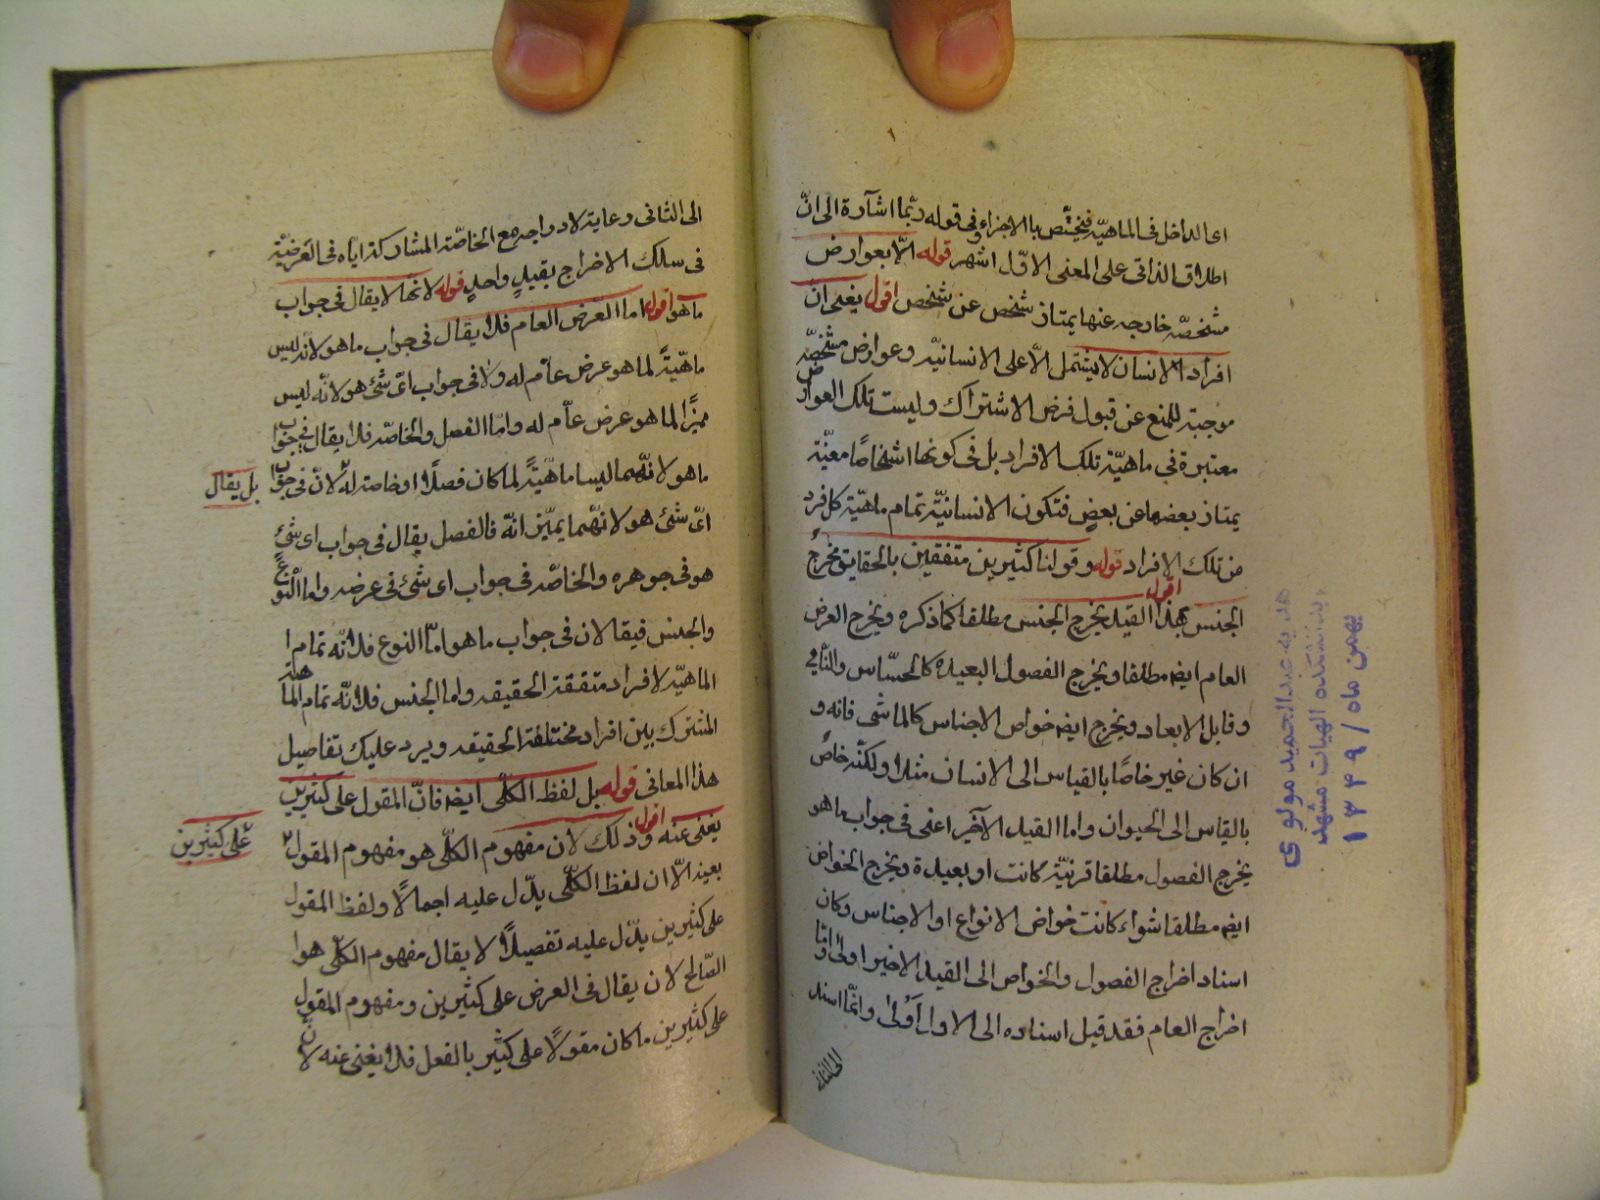 اى الداخل فى الماهيّة فيختّص بالاجزاء وفى قوله ربّما اشارة الى انّ
اطلاق الذاتى على المعنى الاوّل اشهر قوله الّا بعوارض
مشخصّه خارجه عنها يمتاز شخص عن شخص اقول يعنى انّ
افراد الانسان لا يشتمل الّا على الانسانيّه وعوارض مشخصّه
موجبة للمنع عن قبول فرض الاشتراك وليست تلك العوارض
معتبرة فى ماهيّة تلك الافراد بل فى كونها اشخاصًا معيّنة
يمتاز بعضها عن بعضٍ فتكون الانسانيّة تمام ماهيّة كل فرد
من تلك الافراد قوله وقولنا كثيرين متفقين بالحقايق مخرج
الجنس اقول بهذا القيد يخرج الجنس مطلقا كما ذكره ويخرج العرض
العام ايضه مطلقا ويخرج الفصول البعيدة كالحسّاس والنّامى
وقابل الابعاد ويخرج ايضه خواص الاجناس كالماشى فانه و
ان كان غير خاصًا بالقياس الى الانسان مثلا ولكنّه خاصٌ
بالقياس الى الحيوان واما القيد الآخر اعنى فى جواب ما هو
يخرج الفصول مطلقا قريبّة كانت او بعيدة ويخرج الخواص
ايضه مطلقا سواء كانت خواص الانواع او الاجناس وكان
اسناد اخراج الفصول والخواص الى القيد الاخير اولى وامّا
اخراج العام فقد قيل اسناده الى الاوّل اَولى وانّما اسند
الى الثانى
هديه عبدالحميد مولوى
بدانشكده الهيات مشهد
بهمن ماه / ١٣٤٩
الى الثانى رعاية لادراجه مع الخاصّة المشاركة ايّاه فى العَرضيّة
فى سلك الاخراج بقيدٍ واحدٍ قوله لانها لا يقال فى جواب
ما هو اقول اما العرض العام فلا يقال فى جواب ما هو لانّه ليس
ماهيّةً لما هو عرض عاّم له ولا فى جواب اىّ شئ هو لانّه ليس
مميزًا لما هو عرض عاّم له وامّا الفصل والخاصّه فلا يقال فى جواب
ما هو لانّهما ليسا ماهيّةً لما كان فصلًا او خاصة له لانّ فى جواب
بل يقال
اىّ شئ هو لانهّما يميّزانه فالفصل يقال فى جواب اى شئ
هو فى جوهره والخاصّه فى جواب اى شئ فى عرضه واما النوع
والجنس فيقالان فى جواب ما هو امّا النوع فلانّه تمام
الماهيّه لافراد متفقة الحقيقه واما الجنس فلانّه تمام الماهية
المشترك بين افراد مختلفة الحقيقه ويرد عليك تفاصيل
هذا المعانى قوله بل لفظ الكلّى ايضه فانّ المقول على كثيرين
يغنى عنه اقول وذلك لان مفهوم الكلّى هو مفهوم المقول
على كثيرين
بعينه الّا ان لفظ الكلّى يدّل عليه اجمالًا ولفظ المقول
على كثيرين يدّل عليه تفصيلًا لا يقال مفهوم الكلّى هو
الصّالح لان يقال فى العرض على كثيرين ومفهوم المقول
على كثيرين ما كان مقولًا على كثير بالفعل فلا يغنى عنه لانّ